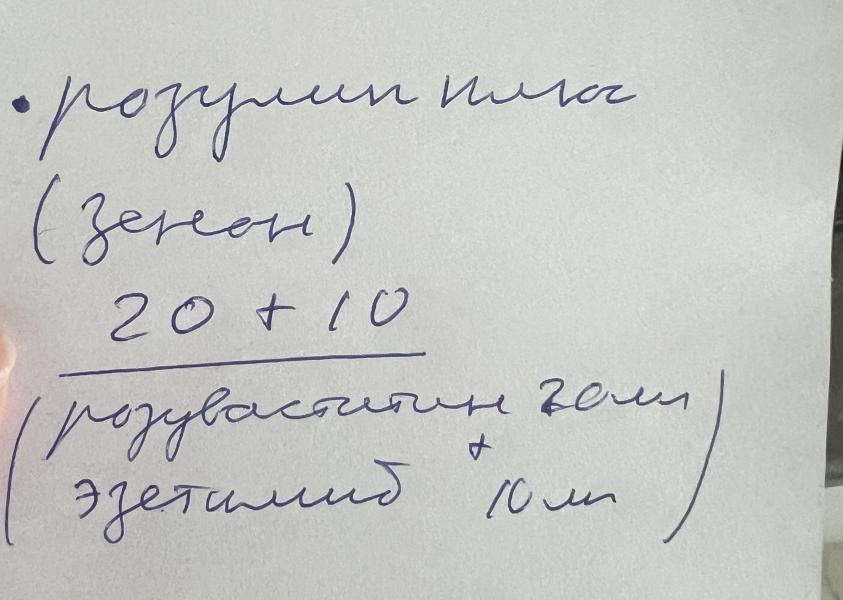 • розулип плюс
(зенон)
20 + 10
(розувастатин 20мг
+
эзетимиб 10 мг)